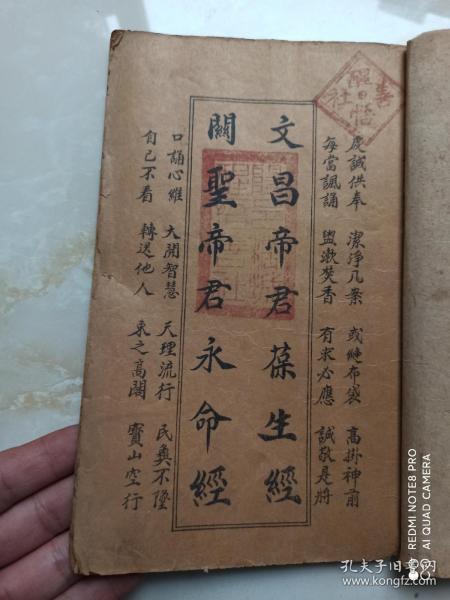 虔誠供奉 潔淨几案 或絁布袋 高掛神前
每當諷誦 盥漱焚香 有求必應 誠敬是將
文昌帝君葆生經
關聖帝君永命經
口誦心維 大開智慧 天理流行 民彝不墜
自己不看 轉送他人 束之高閣 寶山空行
REDMI NOTE8 PRO
AI QUAD CAMERA
孔夫子旧书网
kongfz.com